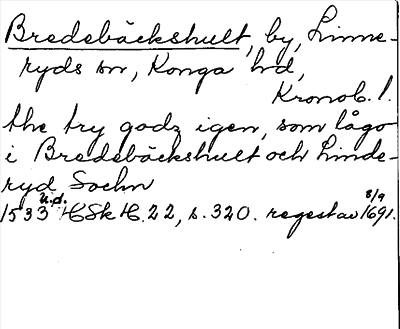 Bredebäckshult, by, Linne-
ryds sn, Konga hd,
Kronob. l.
the try godz igen, som lågo
i Bredebäckshult och Linde-
ryd Sochn
1533 u.d. HSkH. 22, s. 320. regest av 8/9 1691.